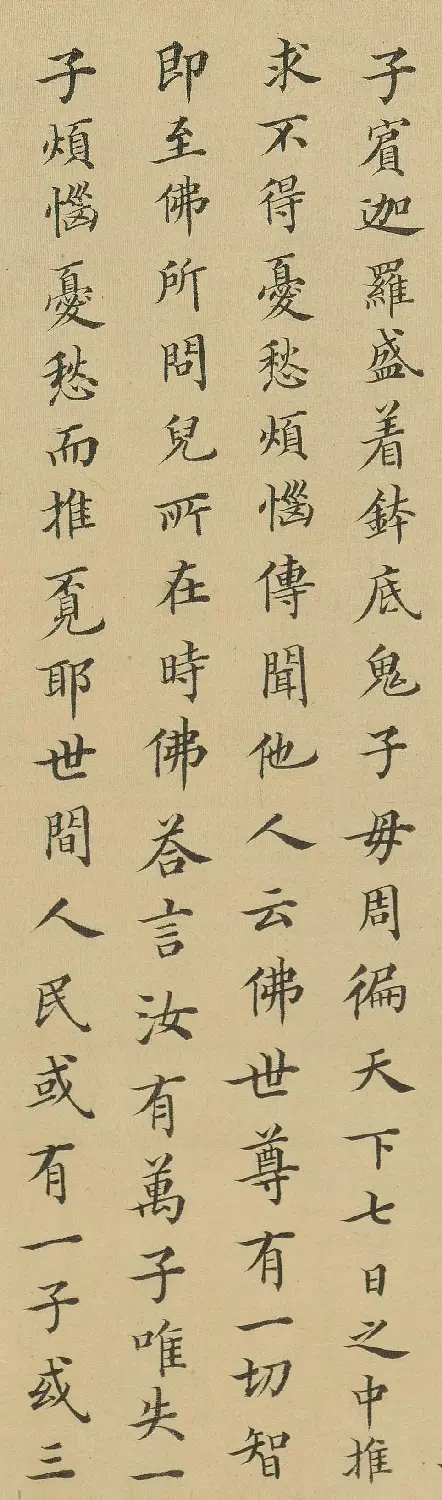 子賔迦羅盛着鉢底鬼子毋周徧天下七日之中推
求不得憂愁煩惱傳聞他人云佛世尊有一切智
即至佛所問兒所在時佛荅言汝有萬子唯失一
子煩惱憂愁而推覓耶世間人民或有一子或三